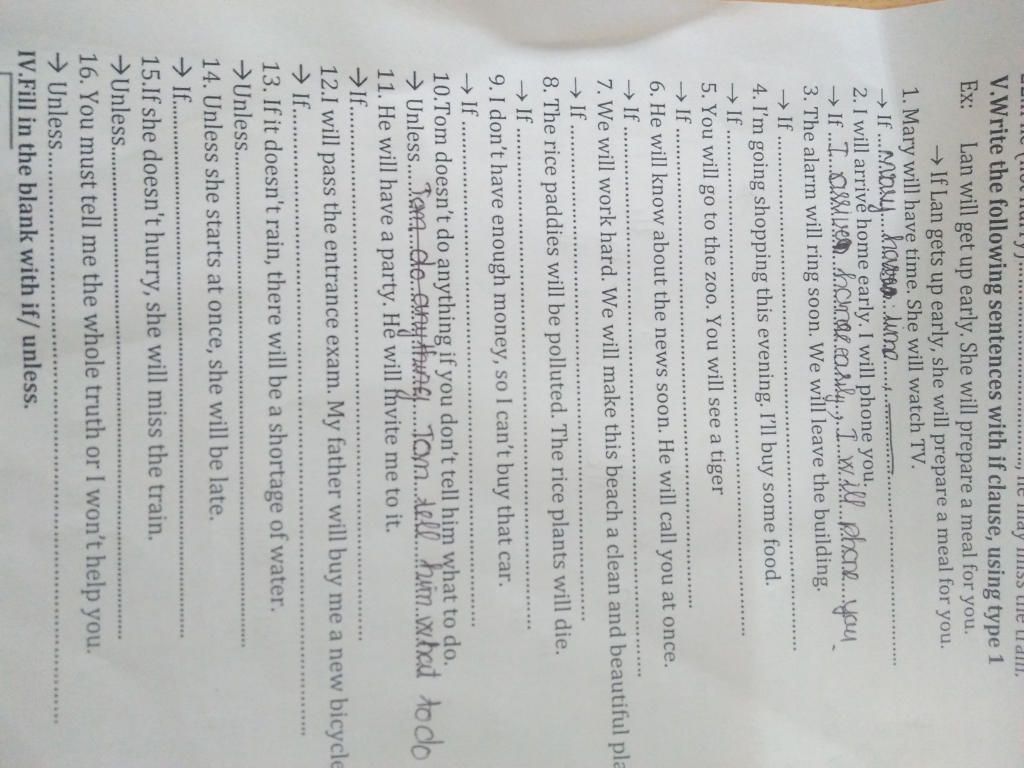 V.Write the following sentences with if clause, using type 1
Ex: Lan will get up early. She will prepare a meal for you.
→ If Lan gets up early, she will prepare a meal for you.
1. Mary will have time. She will watch TV.
→ If Mary has time,
2. I will arrive home early. I will phone you.
→ If I arrive home early, I will phone you.
3. The alarm will ring soon. We will leave the building.
→ If
4. I'm going shopping this evening. I'll buy some food.
→ If
5. You will go to the zoo. You will see a tiger
→ If
6. He will know about the news soon. He will call you at once.
→ If
7. We will work hard. We will make this beach a clean and beautiful
→ If
8. The rice paddies will be polluted. The rice plants will die.
→ If
9. I don't have enough money, so I can't buy that car.
→ If
10.Tom doesn't do anything if you don't tell him what to do.
→ Unless Tom do anything Tom tell him what to do
11. He will have a party. He will invite me to it.
→ If
12.I will pass the entrance exam. My father will buy me a new bicycle
→ If
13. If it doesn't rain, there will be a shortage of water.
→Unless
14. Unless she starts at once, she will be late.
→ If
15.If she doesn't hurry, she will miss the train.
→Unless
16. You must tell me the whole truth or I won't help you.
→ Unless
IV.Fill in the blank with if/ unless.